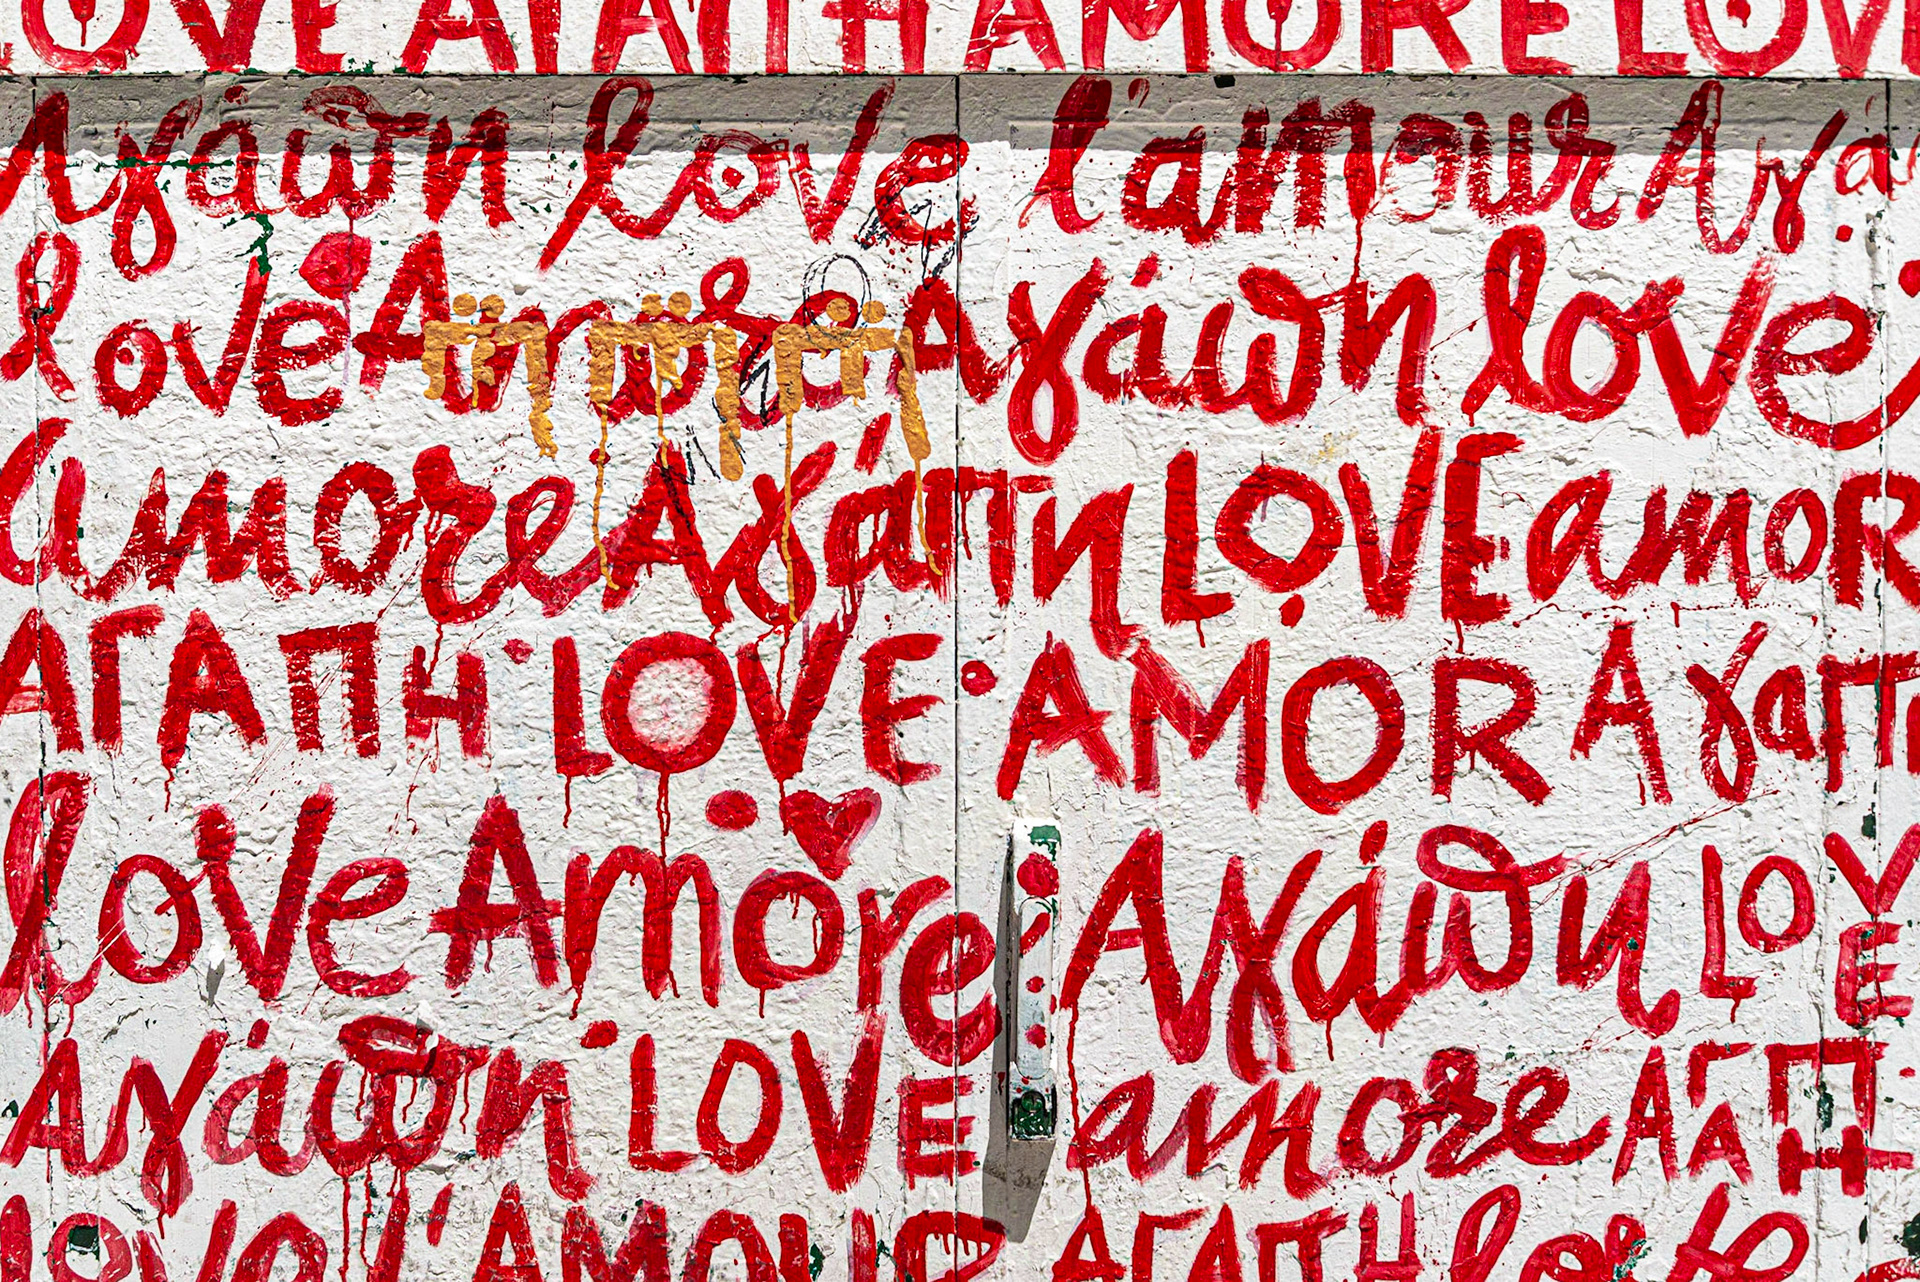 LOVE ΑΓΑΠΗ AMORE LOVE
Αγάπη love l'amour Αγά
love Amore Αγάπη love
amore Αγάπη LOVE amoR
ΑΓΑΠΗ LOVE AMOR Αγαπ
love Amore Αγάπη LOVE
Αγάπη LOVE amore ΑΓΑΠΗ
love L'AMOUR ΑΓΑΠΗ love